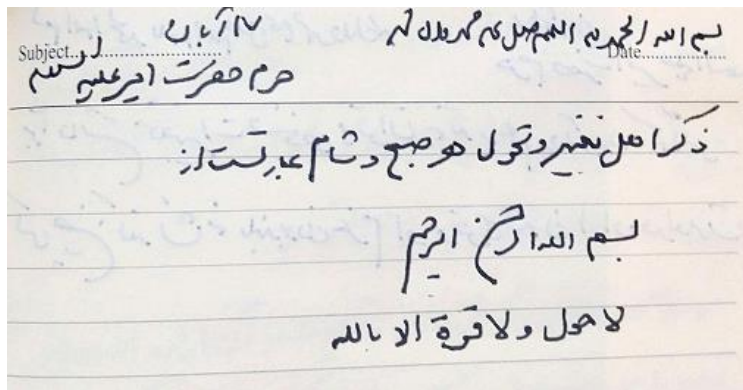 بسم الله الحمد لله اللهم صل علی محمد و آل محمد
Date
۱۷ آبان
Subject
حرم حضرت امیر علیه السلام
ذکر اهل تغییر و تحول هر صبح و شام عبارتست از
بسم الله الرحمن الرحیم
لا حول ولا قوة الا بالله